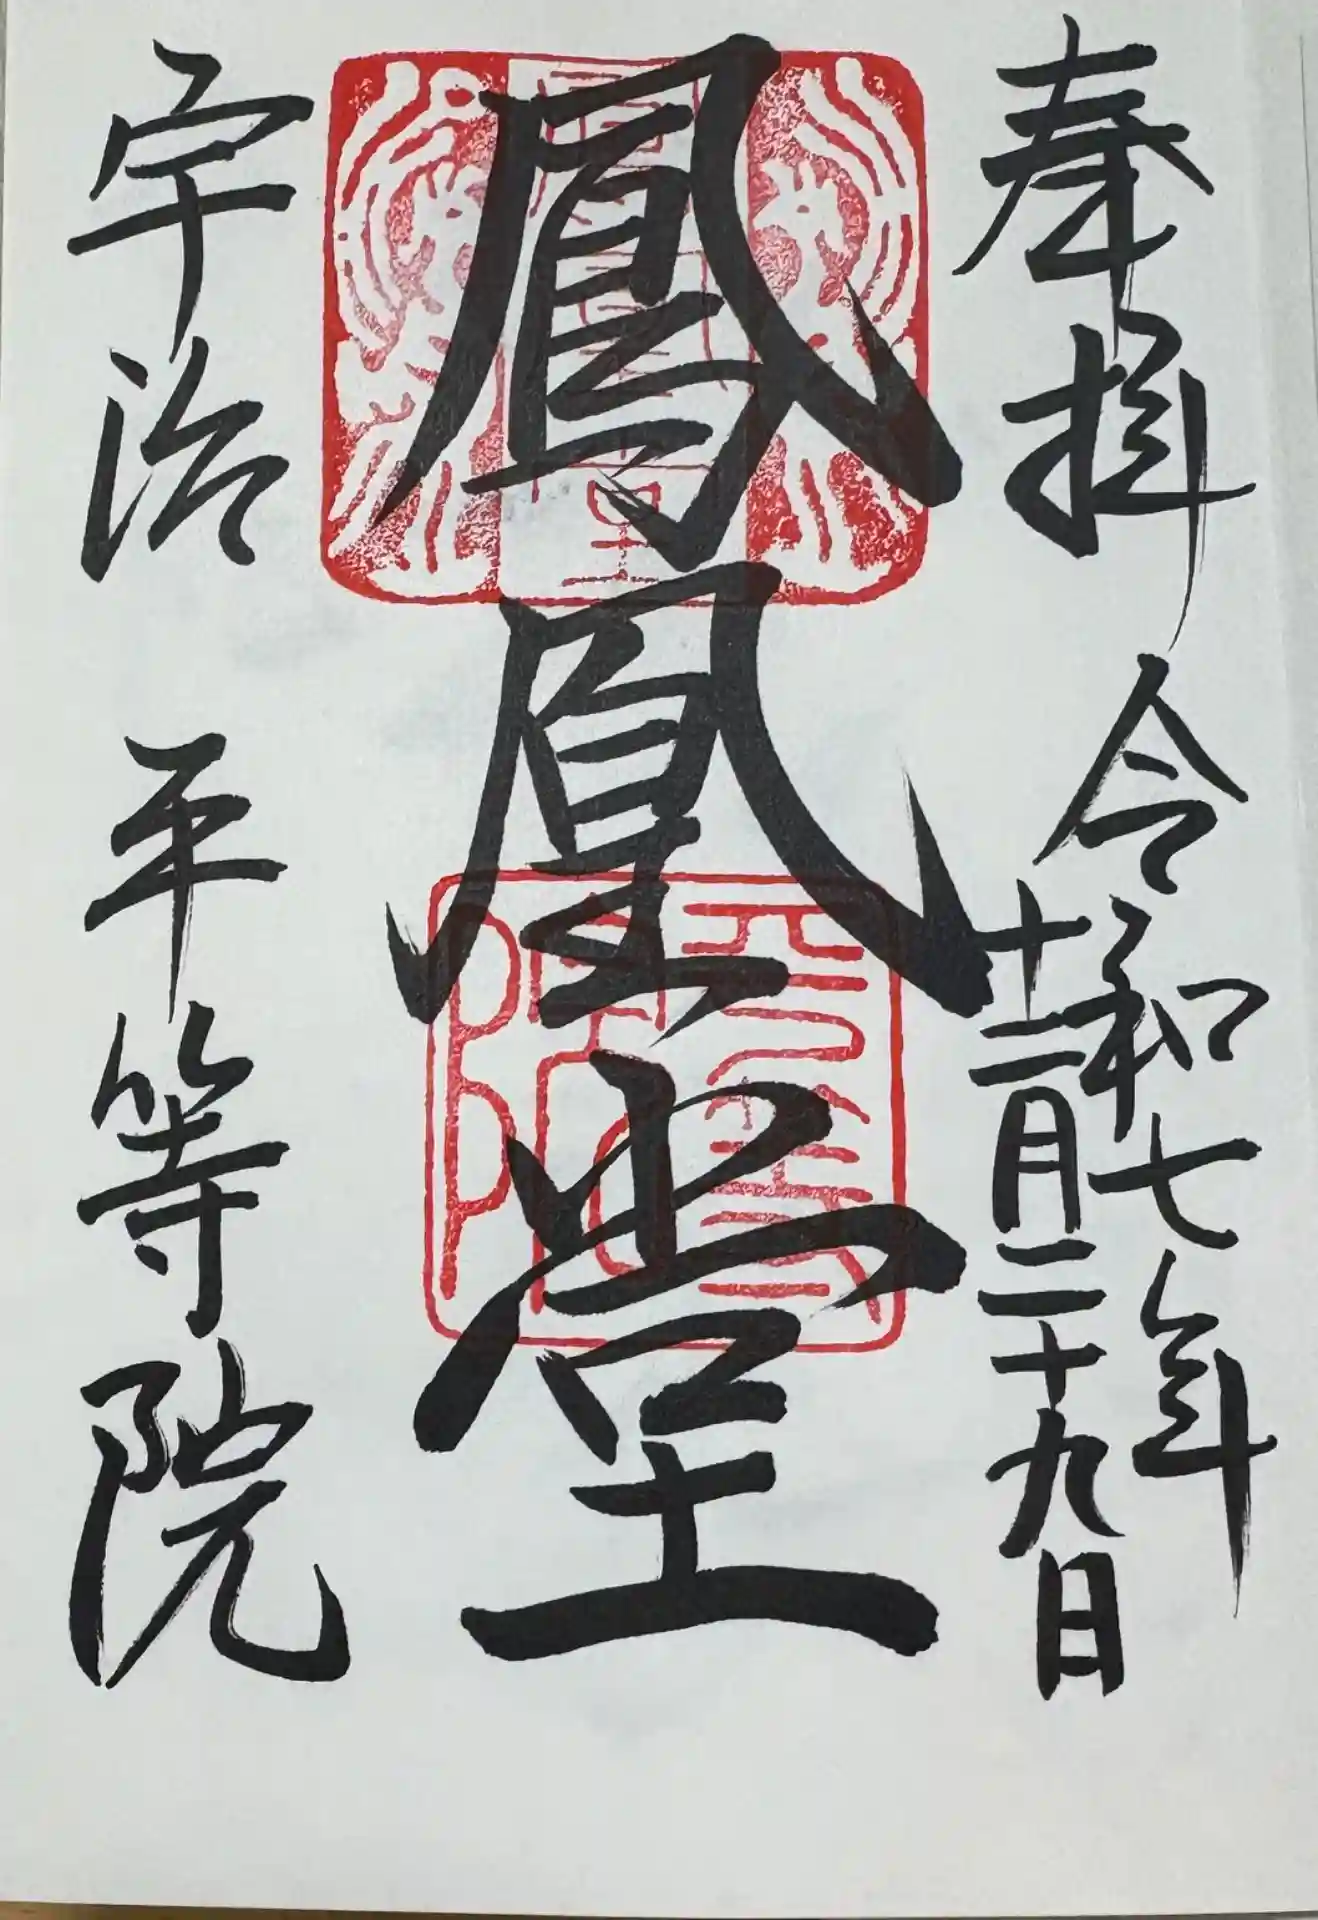 奉拝 令和七年
十二月二十九日
鳳凰堂
宇治 平等院